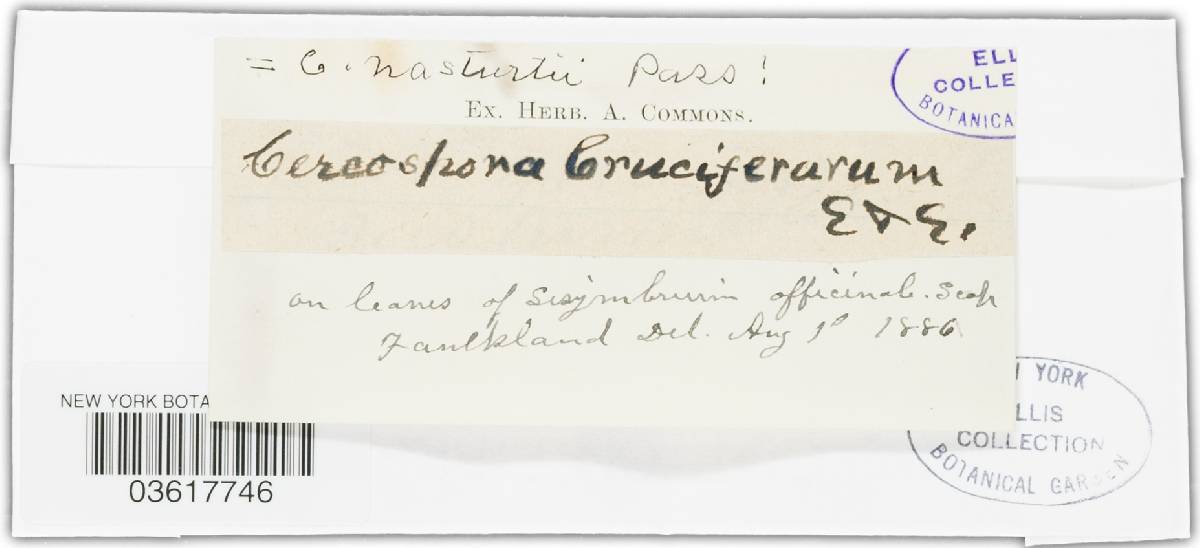 = C. nasturtii Pass!
EX. HERB. A. COMMONS.
Cercospora Cruciferarum
E & E.
on leaves of Sisymbrium officinale. Scop
Faulkland Del. Aug 1º 1886
ELL
COLLE
BOTANICA
NEW YORK BOTA
03617746
YORK
LLIS
COLLECTION
BOTANICAL GARDEN